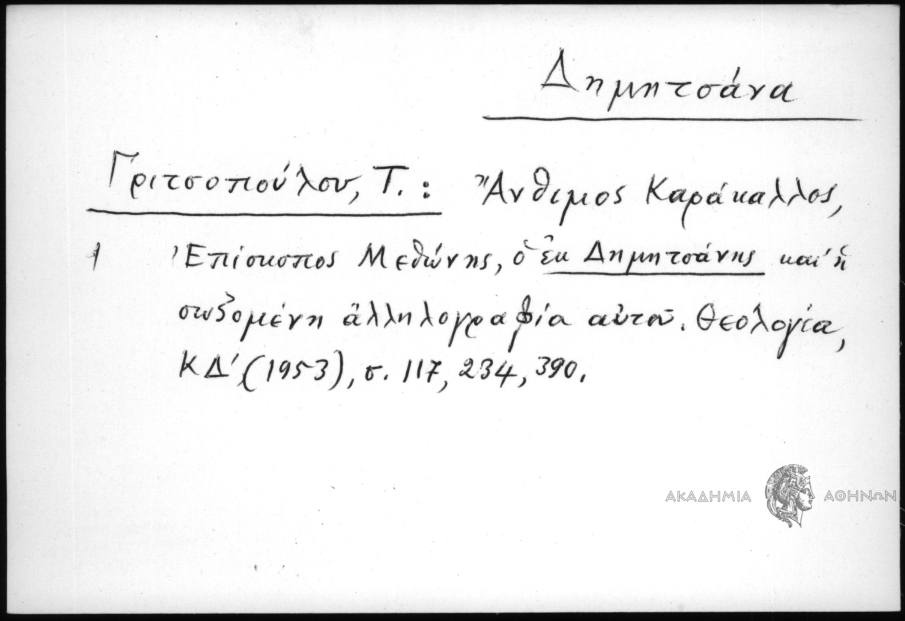 Δημητσάνα
Γριτσοπούλου, Τ.: Ἄνθιμος Καράκαλλος,
Ἐπίσκοπος Μεθώνης, ὁ ἐκ Δημητσάνης καὶ ἡ
σωζομένη ἀλληλογραφία αὐτοῦ. Θεολογία,
ΚΔ΄ (1953), σ. 117, 234, 390.
ΑΚΑΔΗΜΙΑ ΑΘΗΝΩΝ